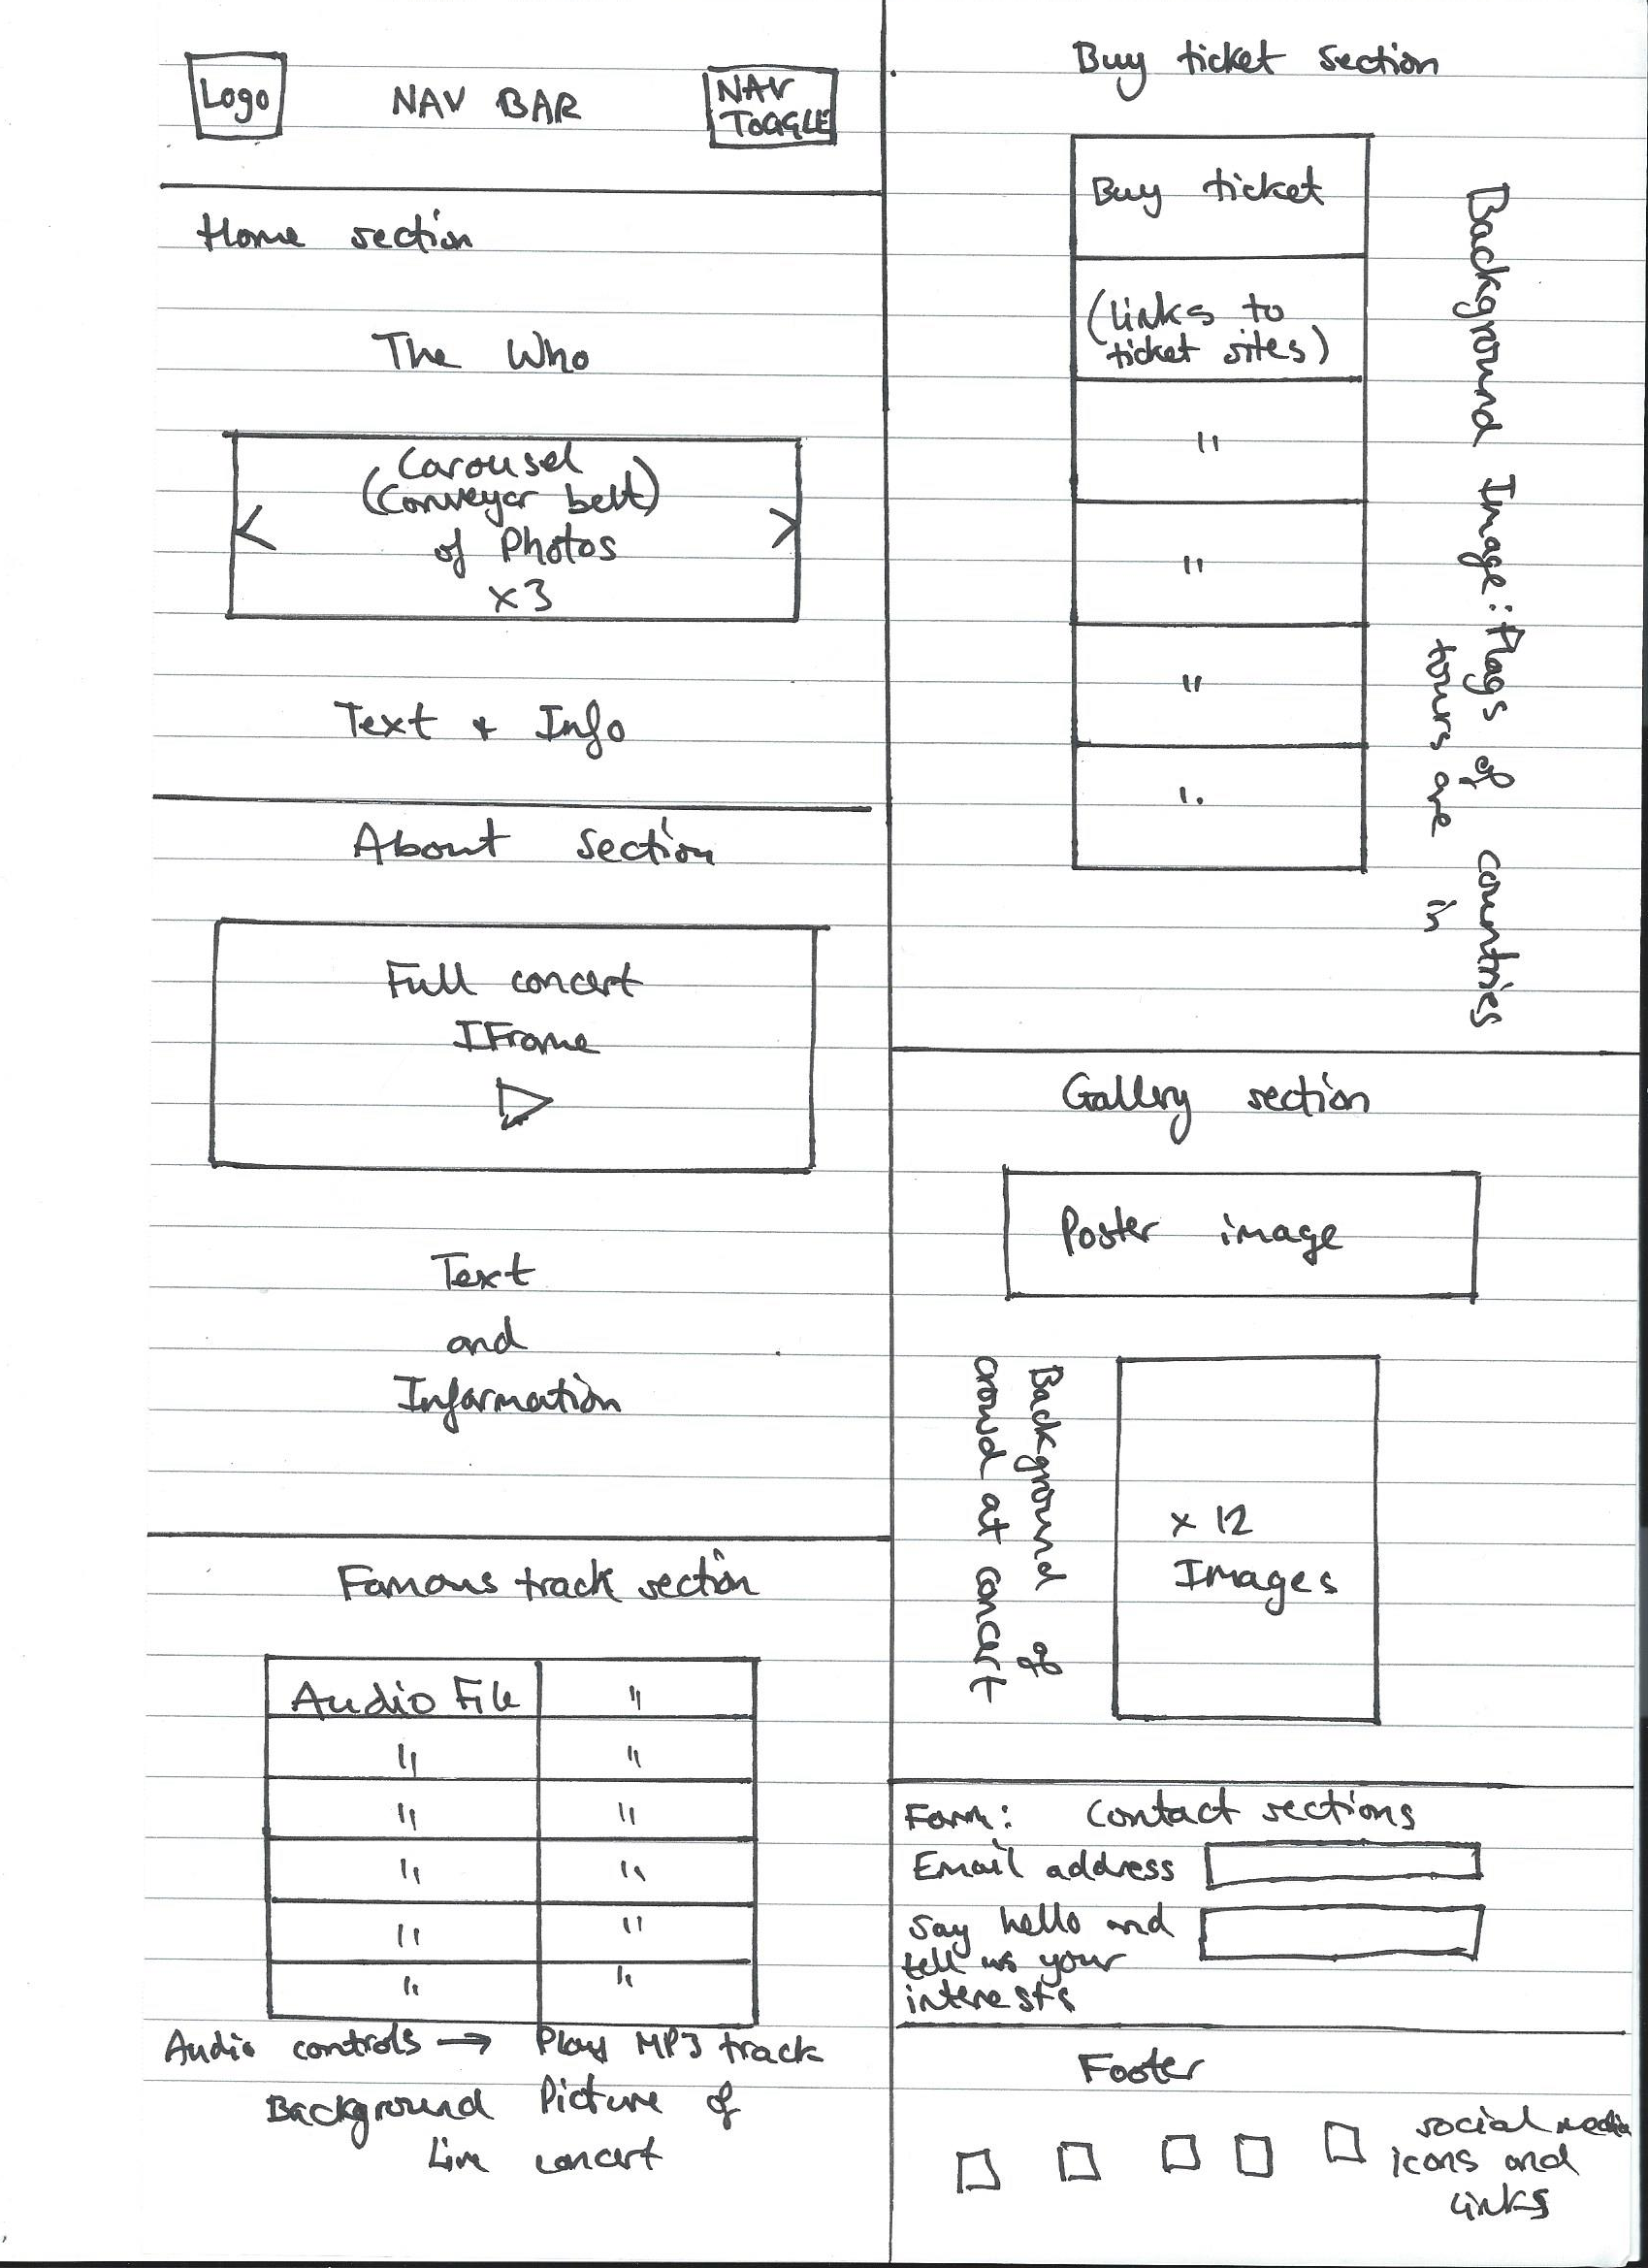 Logo
NAV BAR
NAV
TOGGLE
Home section
The Who
Carousel
(Conveyor belt)
of Photos
x3
<
>
Text + Info
About section
Full concert
IFrame
Text
and
Information
Famous track section
Audio File "
" "
" "
" "
" "
" "
Audio controls → Play MP3 track
Background Picture of
Live concert
Buy ticket section
Buy ticket
(links to
ticket sites)
"
"
"
"
Background Image: flags of countries
tours are in
Gallery section
Poster image
Background of
crowd at concert
x 12
Images
Form: Contact sections
Email address
Say hello and
tell us your
interests
Footer
social media
icons and
links